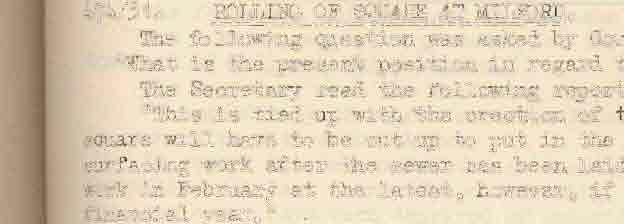 ROLLING OF SQUARE AT MILFORD.
The following question was asked by Cou
What is the present position in regard t
The Secretary read the following report
"This is tied up with the erection of t
square will have to be cut up to put in the
surfacing work after the sewer has been laid
work in February at the latest, however, if
financial year."